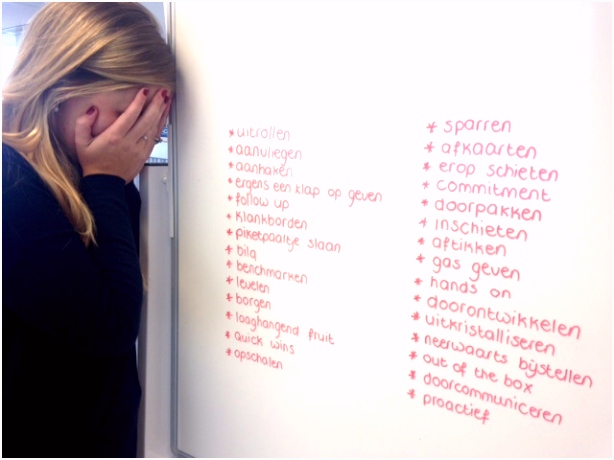 * uitrollen
* aanvliegen
* aanhaken
* ergens een klap op geven
* follow up
* klankborden
* piketpaaltje slaan
* bila
* benchmarken
* levelen
* borgen
* laaghangend fruit
* quick wins
* opschalen
* sparren
* afkaarten
* erop schieten
* commitment
* doorpakken
* inschieten
* aftikken
* gas geven
* hands on
* doorontwikkelen
* uitkristalliseren
* neerwaarts bijstellen
* out of the box
* doorcommuniceren
* proactief